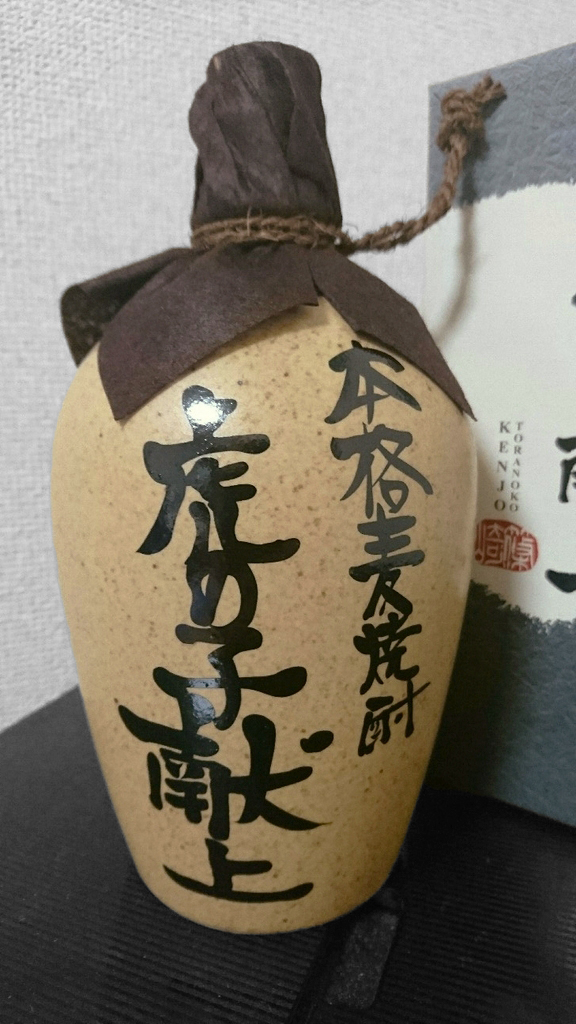 本格麦焼酎
虎の子献上
TORANOKO
KENJO
篠崎
献上